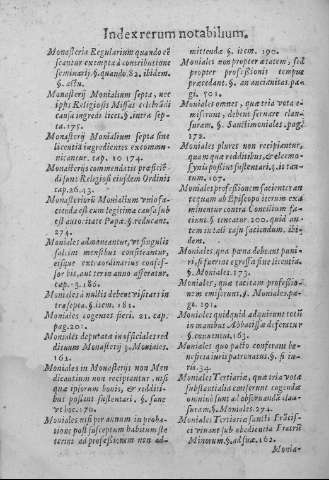 Index rerum notabilium.
Monasteria Regularium quando cē
seantur exempta à contributione
seminarij. §. quando. 82. ibidem.
§. astu.
Monasterij Monialium septa, nec
ipsis Religiosis Missas celebrādi
causa ingredi licet, §. intra sep-
ta. 175.
Monasterij Monialium septa sine
licentia ingredientes excommu-
nicantur. cap. 10 174.
Monasterijs commendatis præfici
di sunt Religiosi eiusdem Ordinis
cap. 26. 43.
Monasteriorū Monialium vnio fa-
cienda est cum legitima causa sub
est authoritate Papæ. §. reducant,
274.
Moniales admoneantur, vt singulis
salcim mensibus confiteantur,
eisque extraordinarius confes-
sor bis, aut ter in anno afferatur.
cap. 3. 186.
Moniales à nullis debent visitari in
trasepta. §. item. 181.
Moniales cogentes fieri. 21. cap.
pag. 201.
Moniales deputata in officiales red
dituum Monasterij §. Moniales.
162.
Moniales in Monasterijs non Men
dicantium non recipiantur, nisi
quæ ipsorum bonis, & redditi-
bus possint sustentari. §. sane
vt hoc. 170.
Moniales nisi per annum in proba-
tione post susceptum habitum ste
terint ad professionem non ad-
mittendæ §. item. 190.
Moniales non propter ætatem, sed
propter professionis tempus
præcedant. §. an ancianitas. pa-
gi. 501.
Moniales omnes, quæ tria vota e-
miserunt, debent seruare clau-
suram, §. Sanctimoniales. pag
172.
Moniales plures non recipiantur,
quam quæ redditibus, & eleemo-
synis possint sustentari, §. is tan-
tum. 167.
Moniales professionem facientes an
tequam ab Episcopo iterum exa
minentur contra Concilium fa-
ciunt. §. teneatur. 200. quid au-
tem in tali casu faciendum, ibi-
dem.
Moniales, qua pœna debeant puni-
ri, si fuerint egressæ sine licentia.
§. Moniales. 173.
Moniales, quæ tacitam professio-
nem emiserunt, §. Moniales. pa-
gt. 191.
Moniales quidquid adquirunt totū
in manibus Abbatissæ deferatur
§. conuentui. 163.
Moniales quo pacto conferant be-
neficia iuris patronatus. §. si tu-
tis. 34.
Moniales Tertiariæ, quæ tria vota
substantialia emiserunt cogendæ
omnino sunt ad obseruandā clau-
suram, §. Moniales. 274.
Moniales Tertiariæ sancti Frācis-
ci veniunt sub obedientia Fratrū
Minorum, §. adsua. 162.
Monia-